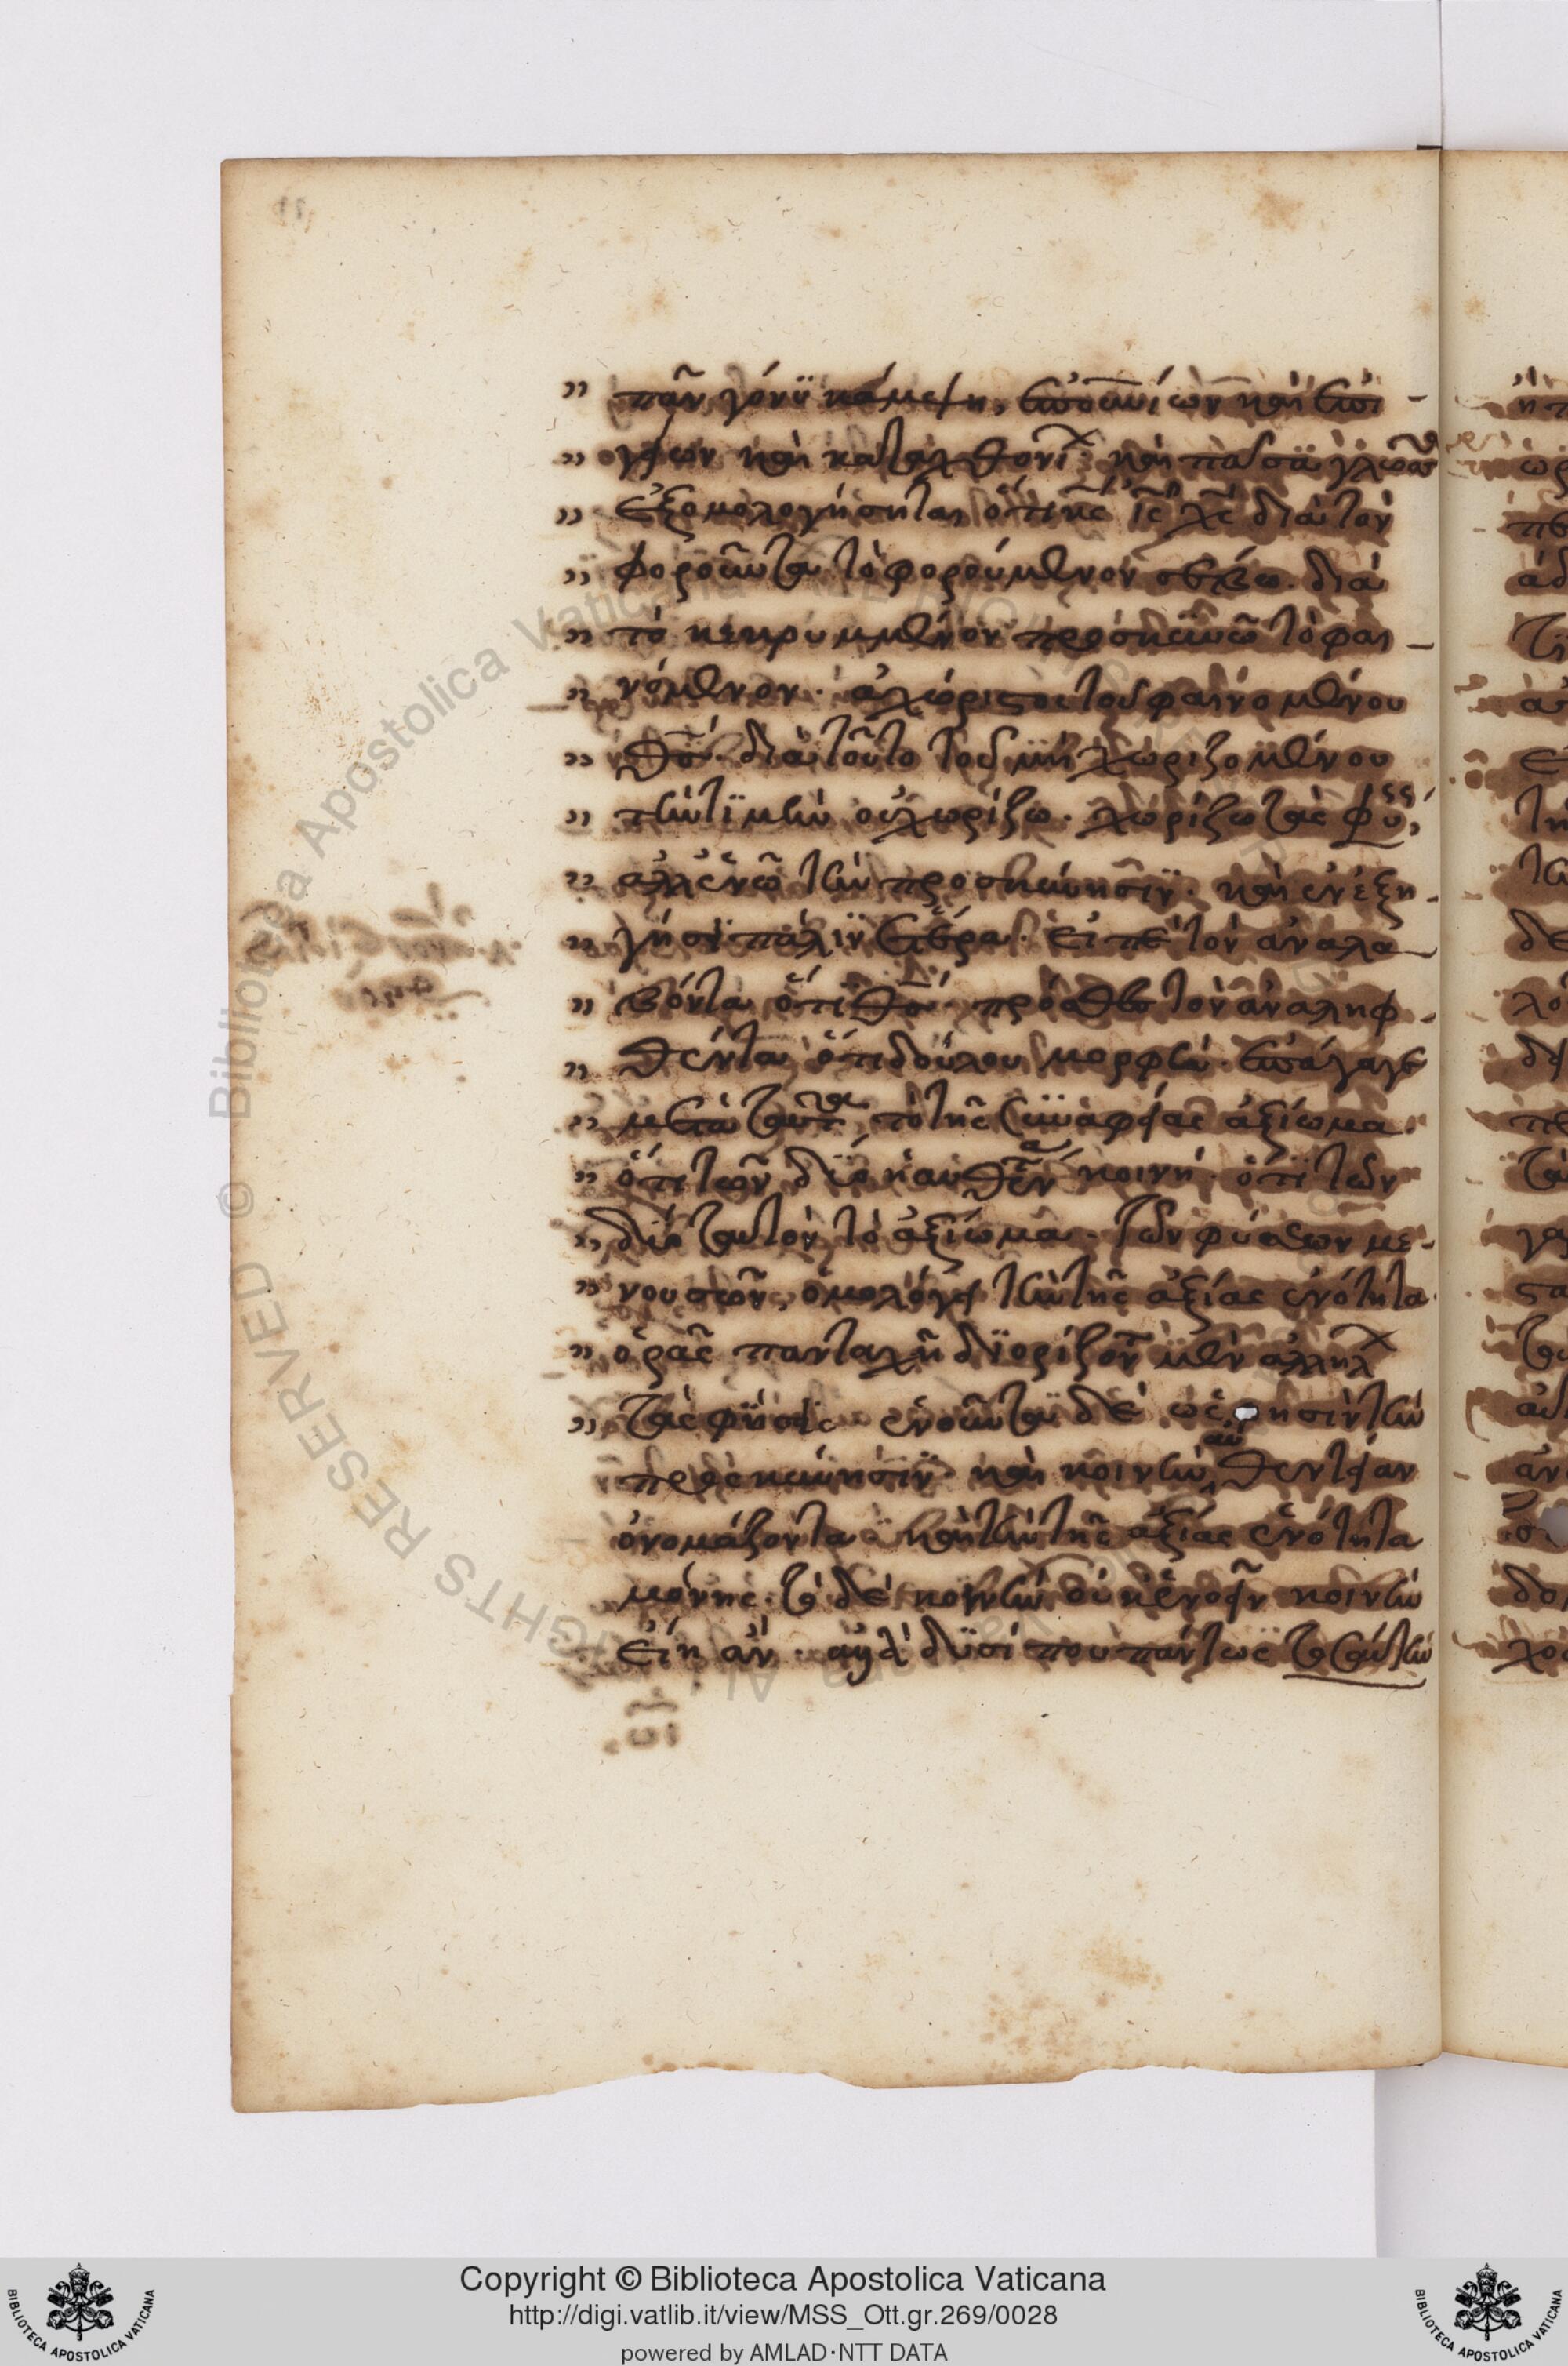 πᾶν γόνυ κάμψη, ἐπουνίων καὶ ἐπι
γείων καὶ καταχθονί καὶ πᾶσα γλῶσσ
ἐξομολογήσηται ὅτι κς ις χς διὰ τὸν
φοροῦντα τὸ φορούμενον σέβω. διὰ
τὸ κεκρυμμένον προσκυνῶ τὸ φαι
νόμενον. ἀχώριστος τοῦ φαινομένου
θς. διὰ τοῦτο τοῦ μὴ χωριζομένου
τὴν τιμὴν οὐ χωρίζω. χωρίζω τὰς φύσ
ἀλλ' ἑνῶ τὴν προσκύνησιν. καὶ ἐν ἐξη
γήσει πάλιν ἑτέρα. εἰπὲ τὸν ἀναλα
βόντα ὅτι θς. πρόσθες τὸν ἀναληφ
θέντα ὅτι δούλου μορφὴ. ἐπάγαγε
μετὰ ταῦτα τὸ τῆς συναφείας ἀξίωμα.
ὅτι τῶν δύο ἡ αὐθεντία κοινή. ὅτι τῶν
δύο ταυτὸν τὸ ἀξίωμα. τῶν φύσεων με
νουσῶν, ὁμολόγει τὴν τῆς ἀξίας ἑνότητα
ὁρᾶς πανταχῆ διορίζοντ μὲν ἀλλήλ
τὰς φύσεις ἑνοῦντα δὲ ὥς φησιν τὴν
προσκύνησιν καὶ κοινὴν αὐθεντείαν
ὀνομάζοντα καὶ τὴν τῆς ἀξίας ἑνότητα
μόνης. τὸ δὲ κοινὴν οὐχ ἑνοειν κοινὴν
εἴη ἄν. ἀλλὰ δυσί που πάντως τὸ ταύτην
Copyright © Biblioteca Apostolica Vaticana
http://digi.vatlib.it/view/MSS_Ott.gr.269/0028
powered by AMLAD·NTT DATA